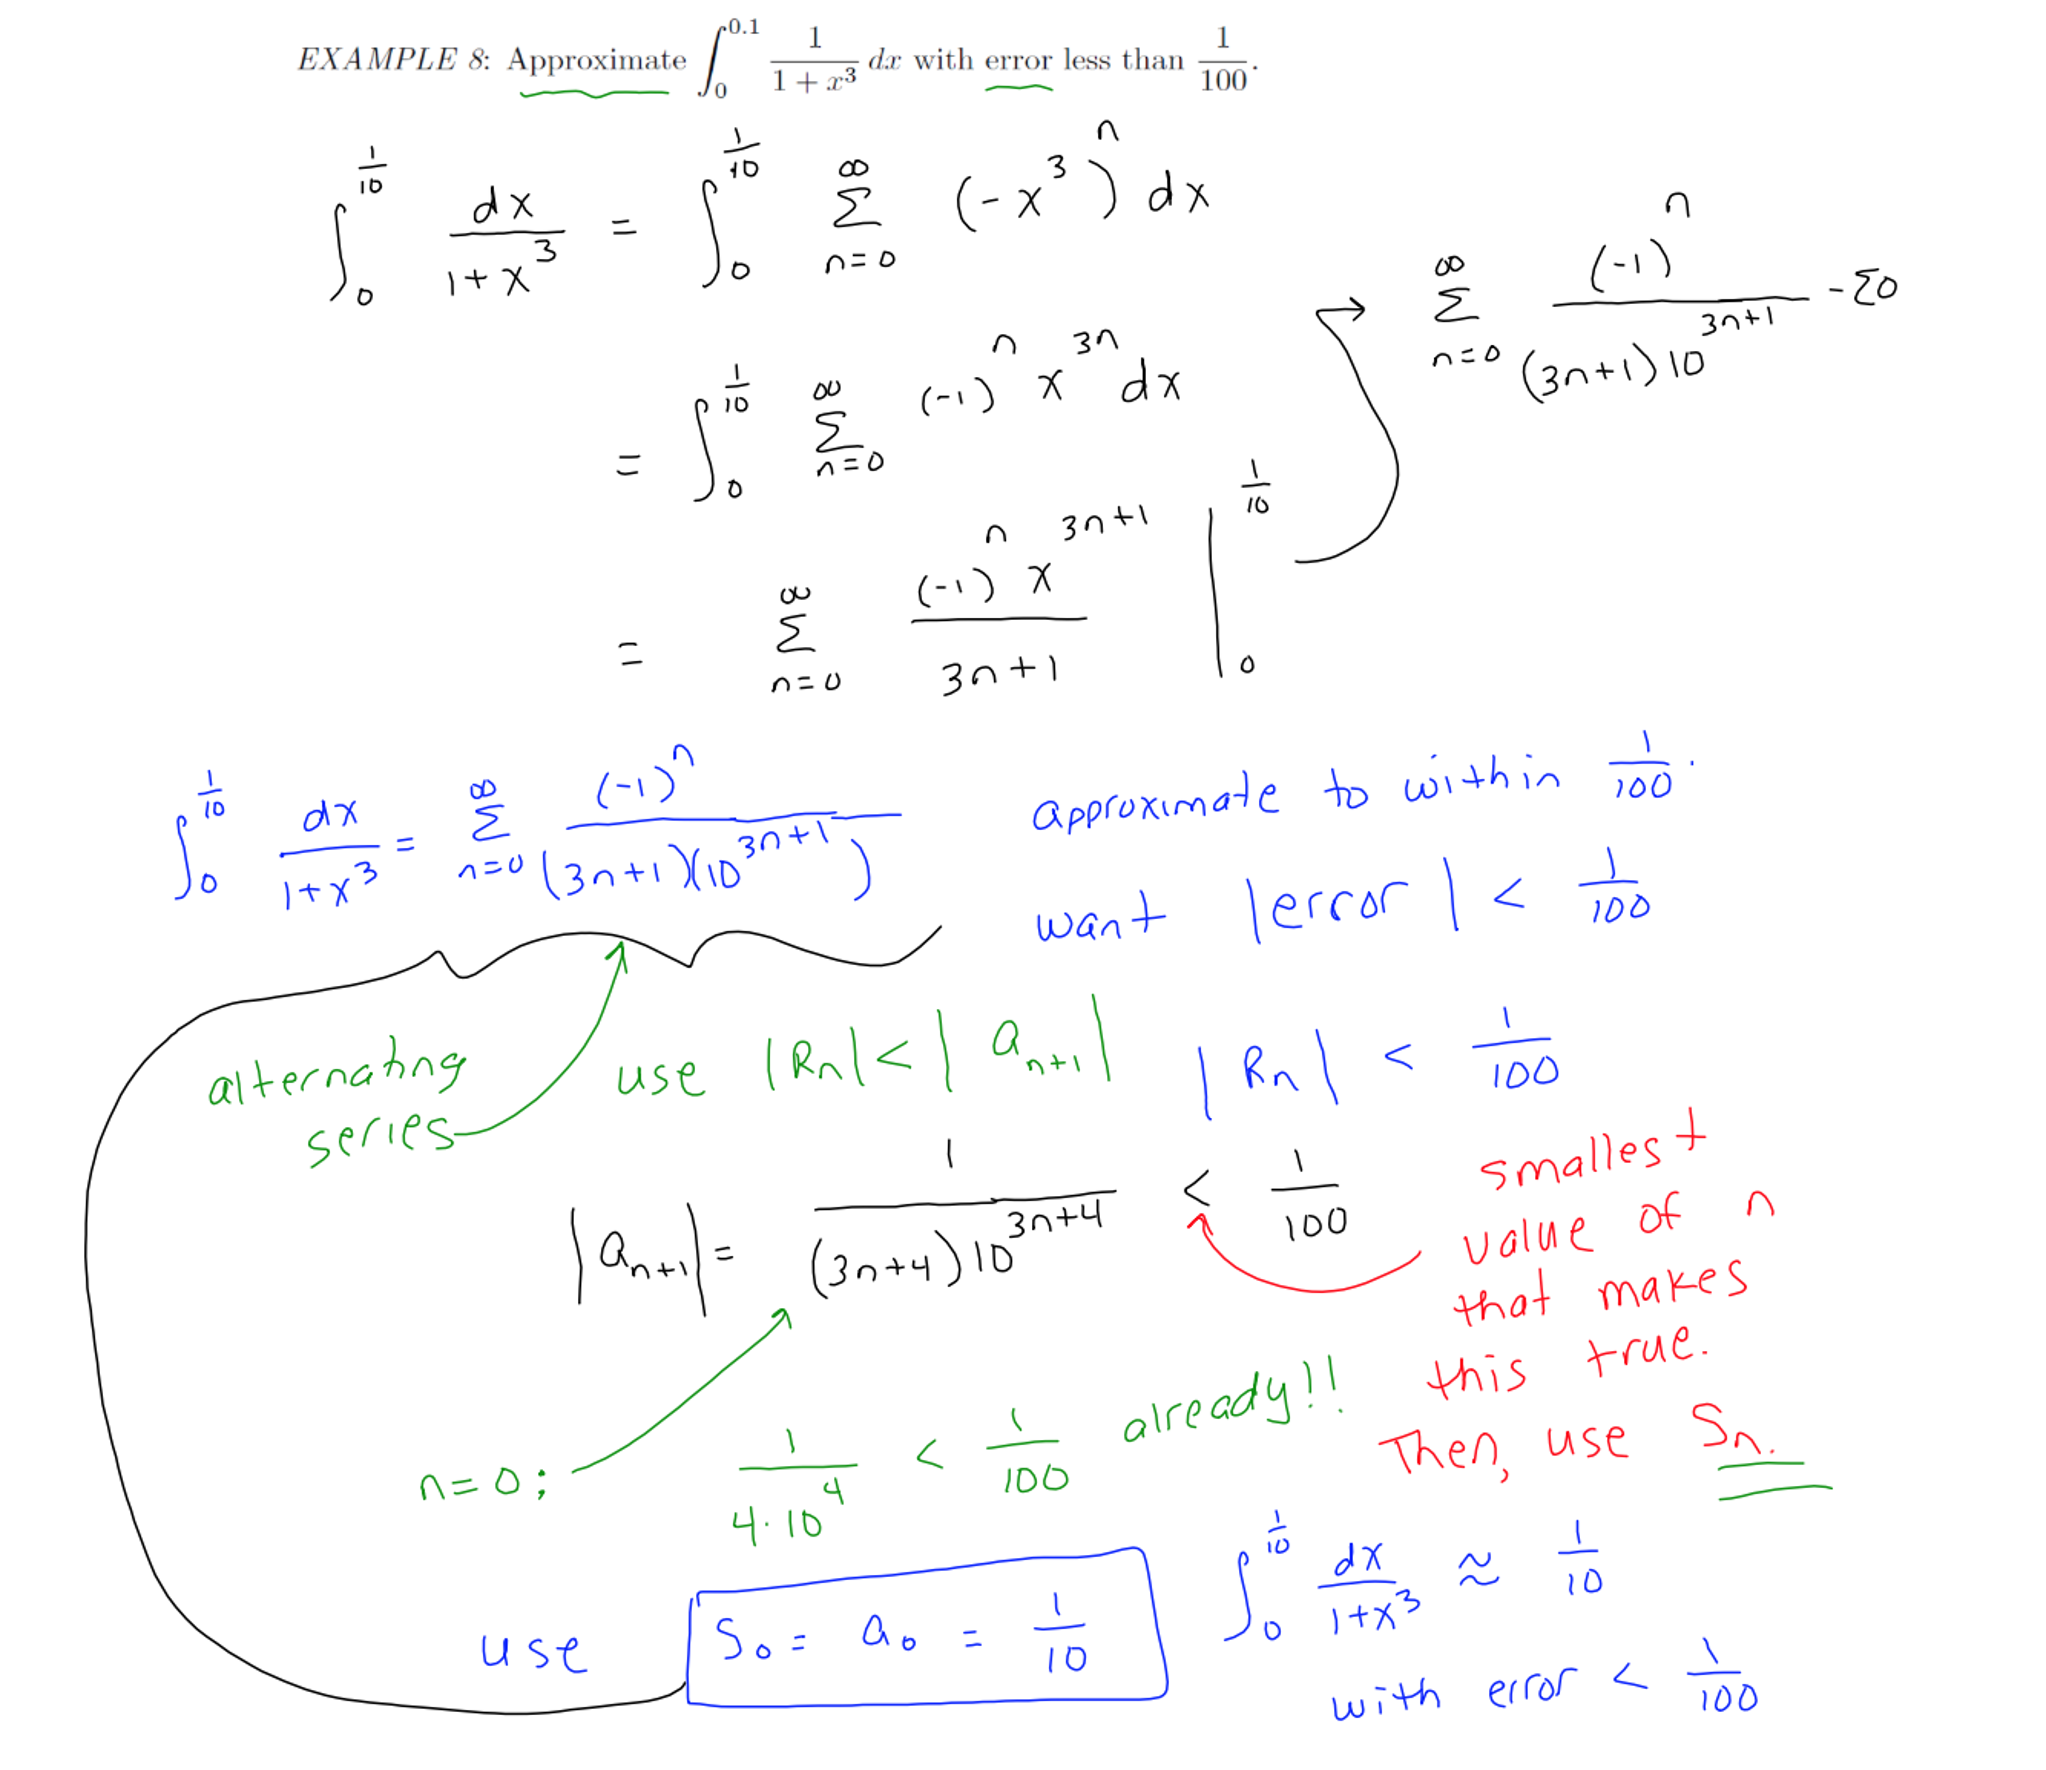 EXAMPLE 8: Approximate ∫_0^{0.1} 1/(1 + x^3) dx with error less than 1/100.
∫_0^{1/10} dx/(1+x^3) = ∫_0^{1/10} ∑_{n=0}^∞ (-x^3)^n dx
= ∫_0^{1/10} ∑_{n=0}^∞ (-1)^n x^{3n} dx
= ∑_{n=0}^∞ (-1)^n x^{3n+1}/(3n+1) |_0^{1/10}
→ ∑_{n=0}^∞ (-1)^n/((3n+1)10^{3n+1}) - ∑0
∫_0^{1/10} dx/(1+x^3) = ∑_{n=0}^∞ (-1)^n/((3n+1)(10^{3n+1}))
approximate to within 1/100.
want |error| < 1/100
alternating
series
use |Rn| < |a_{n+1}|
|Rn| < 1/100
|a_{n+1}| = 1/((3n+4)10^{3n+4}) < 1/100
smallest
value of n
that makes
this true.
Then, use Sn.
n=0: 1/(4·10^4) < 1/100 already!!
use S_0 = a_0 = 1/10
∫_0^{1/10} dx/(1+x^3) ≈ 1/10
with error < 1/100